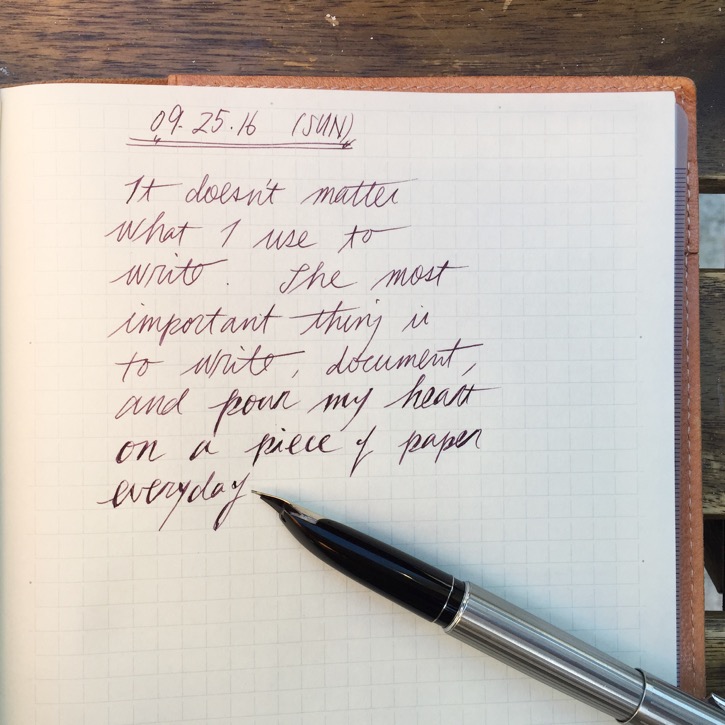 09.25.16 (SUN)
It doesn't matter
what I use to
write. The most
important thing is
to write, document,
and pour my heart
on a piece of paper
everyday